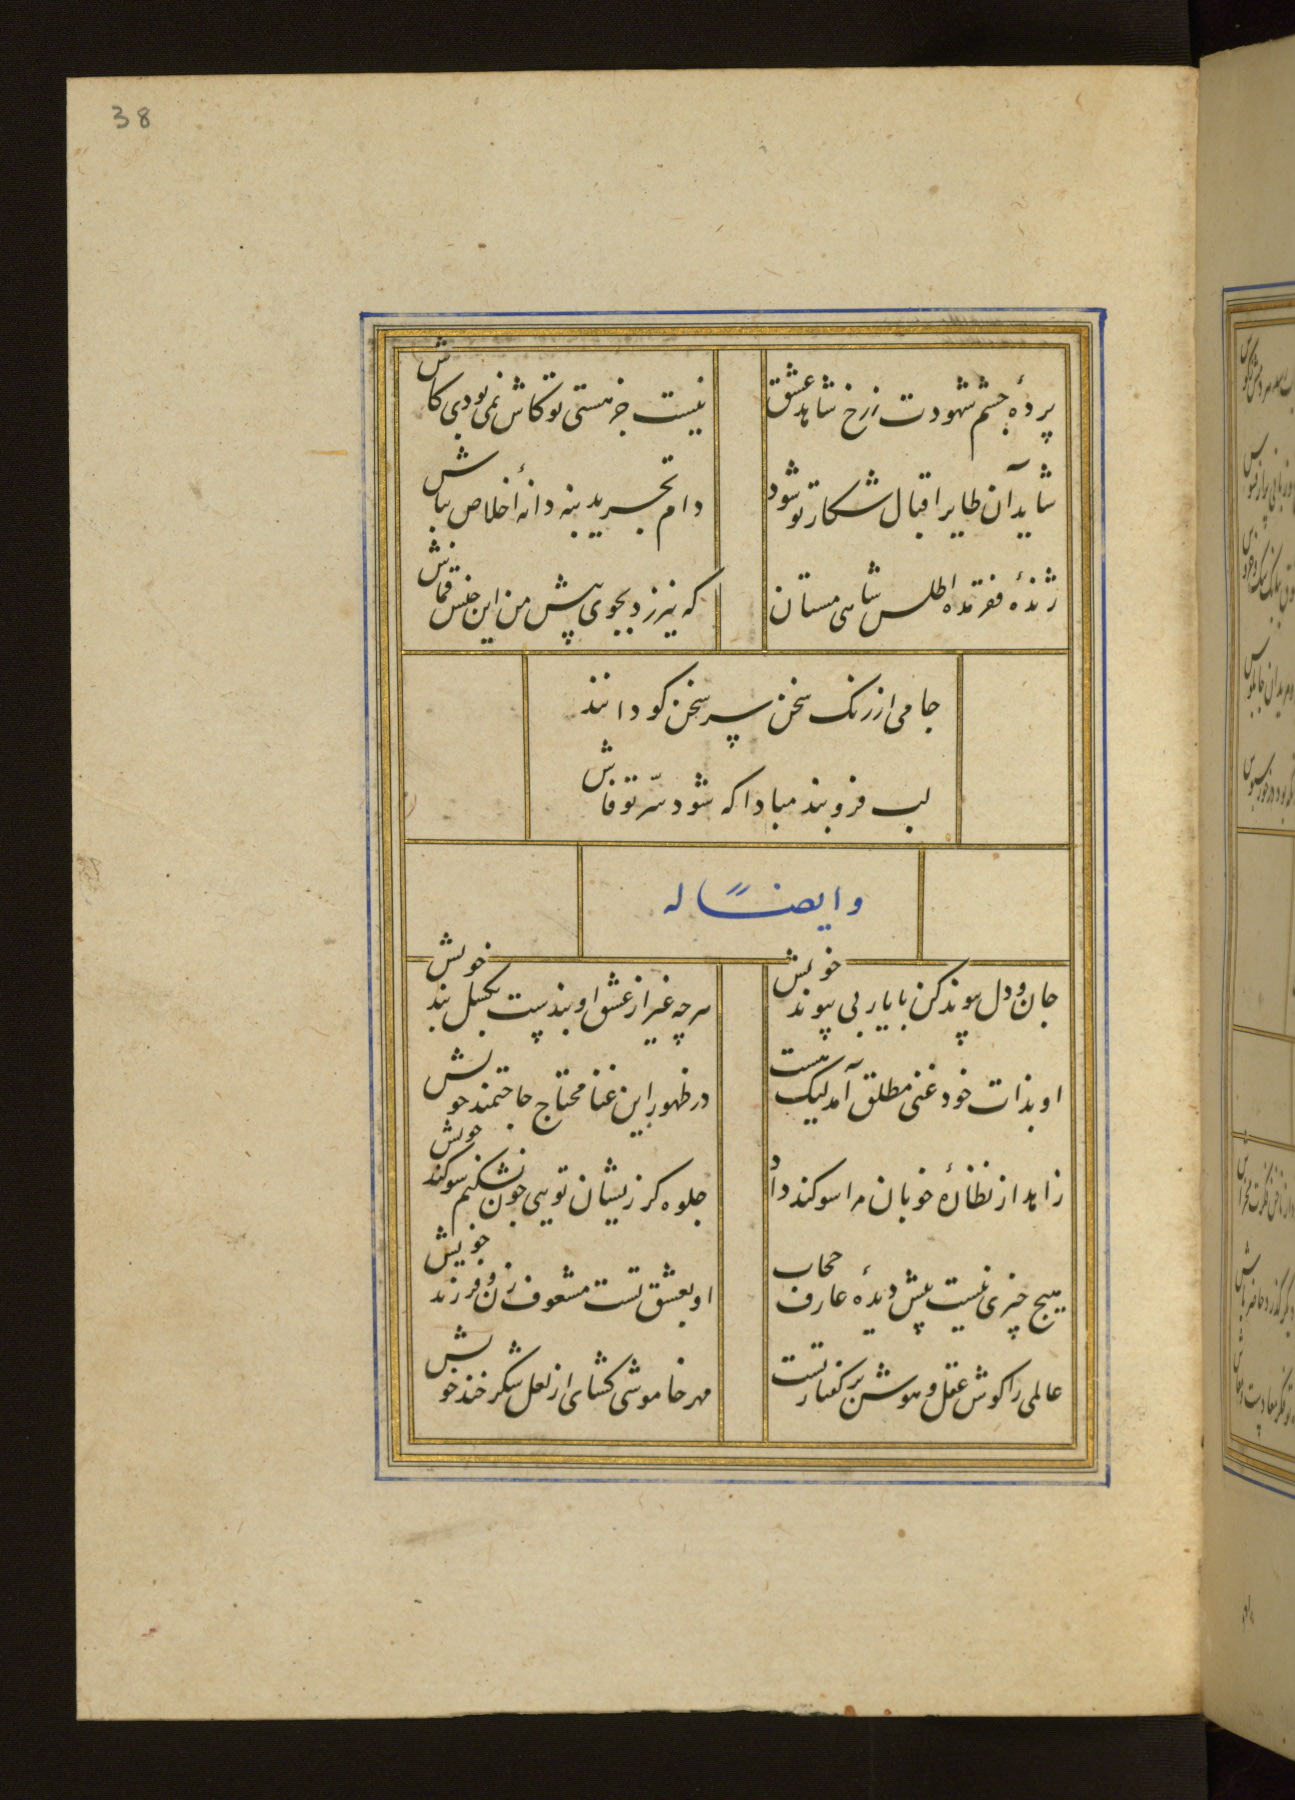 38
پردۀ چشم شهودت ز رخ شاهد عشق
نیست جز هستی تو کاش نمی بودی کاش
شاید آن طایر اقبال شکار تو شود
دام تجرید بنه دانۀ اخلاص بپاش
ژندۀ فقر مده اطلس شاهی مستان
که نیرزد بجوی پیش من این جنس قماش
جامی از رنک سخن سر سخن کو دانند
لب فروبند مبادا که شود سرّ تو فاش
وایضاً له
جان و دل پیوند کن با یار بی پیوند خویش
هرچه غیر از عشق او بندیست بکسل بند خویش
او بذات خود غنی مطلق آمد لیک هست
در ظهور این غنا محتاج حاجتمند خویش
زاهد از نظارۀ خوبان مرا سوکند داد
جلوه کر زیشان تویی چون نشکنم سوکند خویش
هیچ چیزی نیست پیش دیدۀ عارف حجاب
او بعشق تست مشعوف زن و فرزند خویش
عالمی را کوش عقل و هوش بر کفتار تست
مهر خاموشی کشای از لعل شکر خند خویش